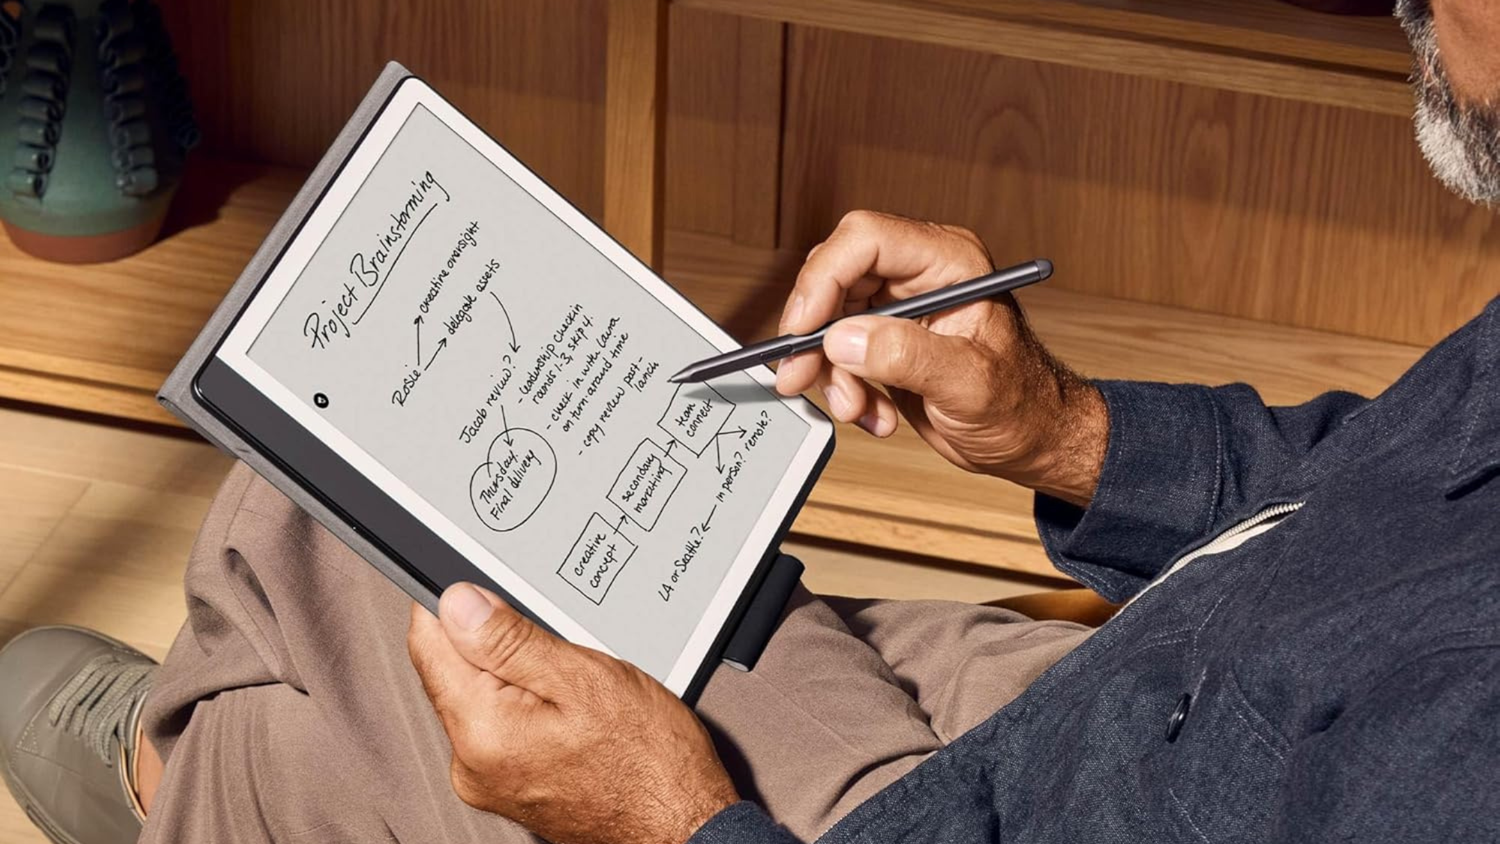 Project Brainstorming
Rosie
creative oversight
delegate assets
Jacob review?
- leadership checkin
rounds 1-3, skip 4.
- check in with Laura
on turn around time
- copy review post-
launch
Thursday
Final delivery
creative
concept
secondary
marketing
team
connect
in person? remote?
LA or Seattle?